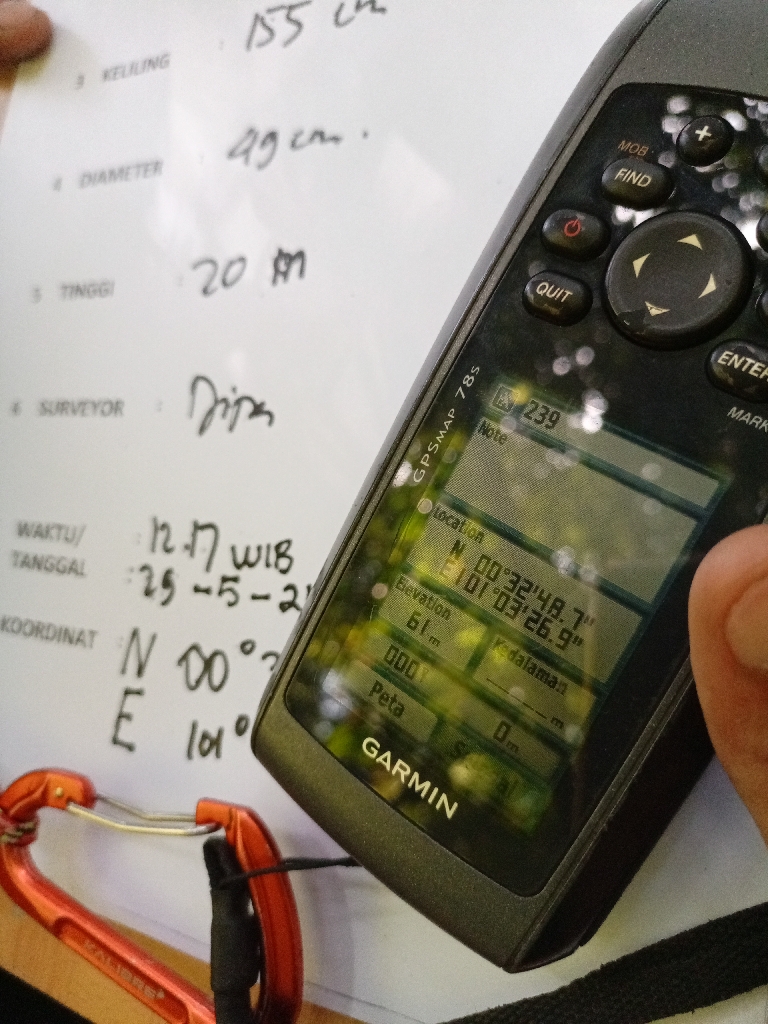 155 cm
3 KELILING :
4 DIAMETER : 49 cm.
5 TINGGI : 20 m
6 SURVEYOR :
WAKTU/
TANGGAL
: 12.17 WIB
: 29-5-2
KOORDINAT : N 00°
E 101°
MOB
FIND
+
QUIT
ENTER
MARK
GPSMAP 78s
239
Note
Location
N 00°32'48.7"
E101°03'26.9"
Elevation
61m
Kedalaman
_____m
0001
0m
Peta
GARMIN